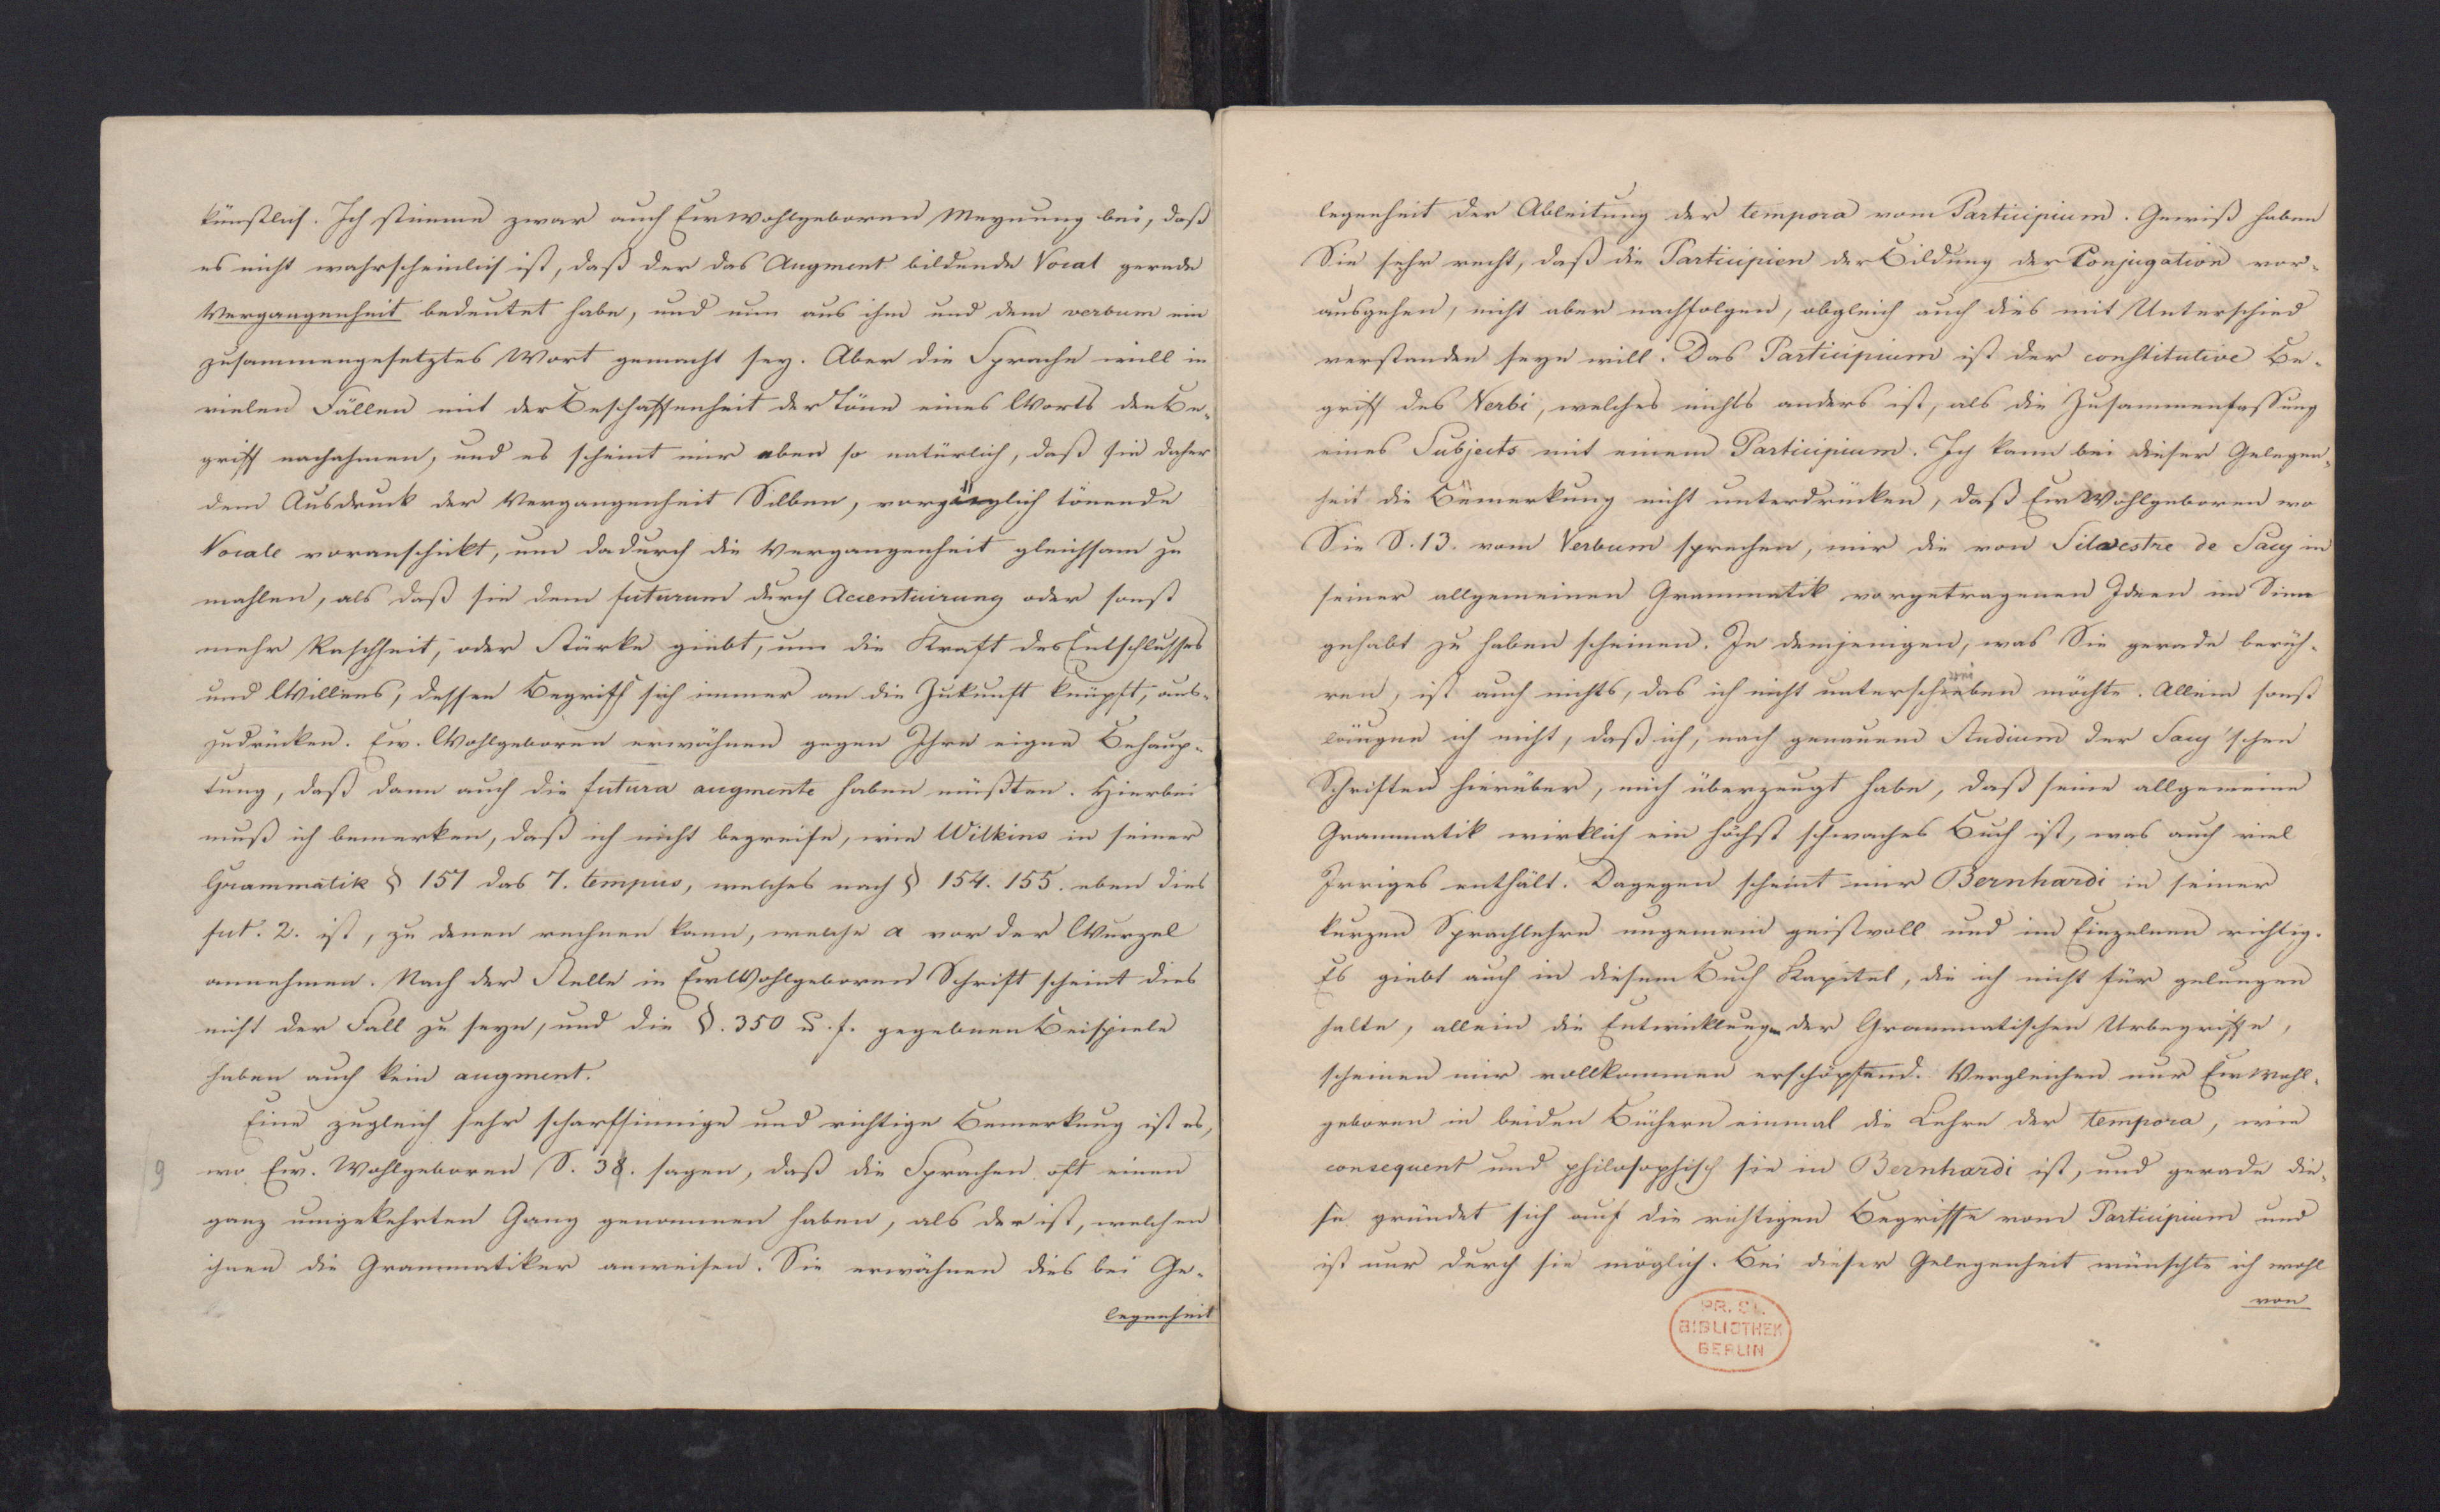 künstlich. Ich stimme zwar auch Ew wohlgeboren Meynung bei, daß
es nicht wahrscheinlich ist, daß der das Augment bildende Vocal gerade
Vergangenheit bedeutet habe, und nun aus ihm und dem verbum ein
zusammengesetztes Wort gemacht sey. Aber die Sprache will in
vielen Fällen mit der Beschaffenheit der Töne eines Worts den Be-
griff nachahmen, und es scheint mir eben so natürlich, daß sie daher
dem Ausdruck der Vergangenheit Silben, vorzüglich tönende
Vocale voranschickt, um dadurch die Vergangenheit gleichsam zu
mahlen, als daß sie dem futurum durch Accentuirung oder sonst
mehr Raschheit, oder Stärke giebt, um die Kraft des Entschlusses
und Willens, dessen Begriff sich immer an die Zukunft knüpft, aus-
zudrücken. Ew. Wohlgeboren erwähnen gegen Ihre eigne Behaup-
tung, daß dann auch die futura augmente haben müßten. Hierbei
muß ich bemerken, daß ich nicht begreife, wie Wilkins in seiner
Grammatik § 151 das 7. tempus, welches nach § 154. 155. eben dies
fut. 2. ist, zu denen rechnen kann, welche a vor der Wurzel
annehmen. Nach der Stelle in Ew Wohlgeboren Schrift scheint dies
nicht der Fall zu seyn, und die §. 350 u. f. gegebnen Beispiele
haben auch kein augment.
Eine zugleich sehr scharfsinnige und richtige Bemerkung ist es,
wo Ew. Wohlgeboren S. 38. sagen, daß die Sprachen oft einen
9
ganz umgekehrten Gang genommen haben, als der ist, welchen
ihnen die Grammatiker anweisen. Sie erwähnen dies bei Ge-
legenheit
legenheit der Ableitung der tempora vom Participium. Gewiß haben
Sie sehr recht, daß die Participien der Bildung der Conjugation vor-
ausgehen, nicht aber nachfolgen, obgleich auch dies mit Unterschied
verstanden seyn will. Das Participium ist der constitutive Be-
griff des Verbi, welches nichts anders ist, als die Zusammenfassung
eines Subjects mit einem Participium. Ich kann bei dieser Gelegen-
heit die Bemerkung nicht unterdrücken, daß Ew Wohlgeboren wo
Sie S. 13. vom Verbum sprechen, mir die von Silvestre de Sacy in
seiner allgemeinen Grammatik vorgetragenen Ideen im Sinn
gehabt zu haben scheinen. In demjenigen, was Sie gerade berüh-
ren, ist auch nichts, das ich nicht unterschreiben möchte. Allein sonst
läugne ich nicht, daß ich, nach genauem Studium der Sacy'schen
Schriften hierüber, mich überzeugt habe, daß seine allgemeine
Grammatik wirklich ein höchst schwaches Buch ist, was auch viel
Irriges enthält. Dagegen scheint mir Bernhardi in seiner
kurzen Sprachlehre ungemein geistvoll und im Einzelnen richtig.
Es giebt auch in diesem Buch Kapitel, die ich nicht für gelungen
halte, allein die Entwicklungen der Grammatischen Urbegriffe,
scheinen mir vollkommen erschöpfend. Vergleichen nur Ew Wohl-
geboren in beiden Büchern einmal die Lehre der tempora, wie
consequent und philosophisch sie in Bernhardi ist, und gerade die-
se gründet sich auf die richtigen Begriffe vom Participium und
ist nur durch sie möglich. Bei dieser Gelegenheit wünschte ich wohl
von
PR. ST.
BIBLIOTHEK
BERLIN